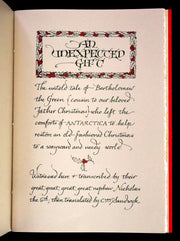 AN
UNEXPECTED
GIFT
The untold tale of Bartholomew
the Green (cousin to our beloved
Father Christmas) who left the
comforts of ANTARCTICA to help
restore an old-fashioned Christmas
to a wayward and needy world.
Witnessed here & transcribed by their
great, great, great, great nephew Nicholas
the 6th, then translated by